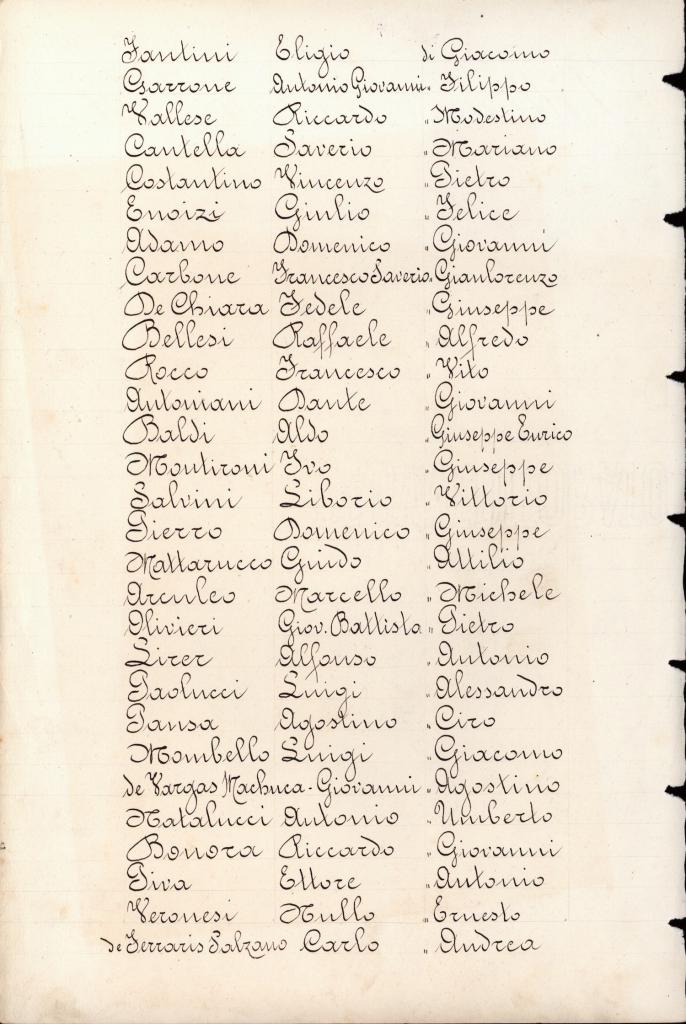 Fantini Eligio di Giacomo
Garrone Antonio Giovanni " Filippo
Vallese Riccardo " Modestino
Cantella Saverio " Mariano
Costantino Vincenzo " Pietro
Enoizi Giulio " Felice
Adamo Domenico " Giovanni
Carbone Francesco Saverio " Gianlorenzo
De Chiara Fedele " Giuseppe
Bellesi Raffaele " Alfredo
Rocco Francesco " Vito
Antoniani Dante " Giovanni
Baldi Aldo " Giuseppe Enrico
Montironi Ivo " Giuseppe
Salvini Liborio " Vittorio
Pierro Domenico " Giuseppe
Mattarucco Guido " Attilio
Arculeo Marcello " Michele
Olivieri Giov. Battista " Pietro
Lirer Alfonso " Antonio
Paolucci Luigi " Alessandro
Pansa Agostino " Ciro
Mombello Luigi " Giacomo
de Vargas Machuca - Giovanni " Agostino
Natalucci Antonio " Umberto
Bonora Riccardo " Giovanni
Piva Ettore " Antonio
Veronesi Nullo " Ernesto
de Ferraris Salzano Carlo " Andrea